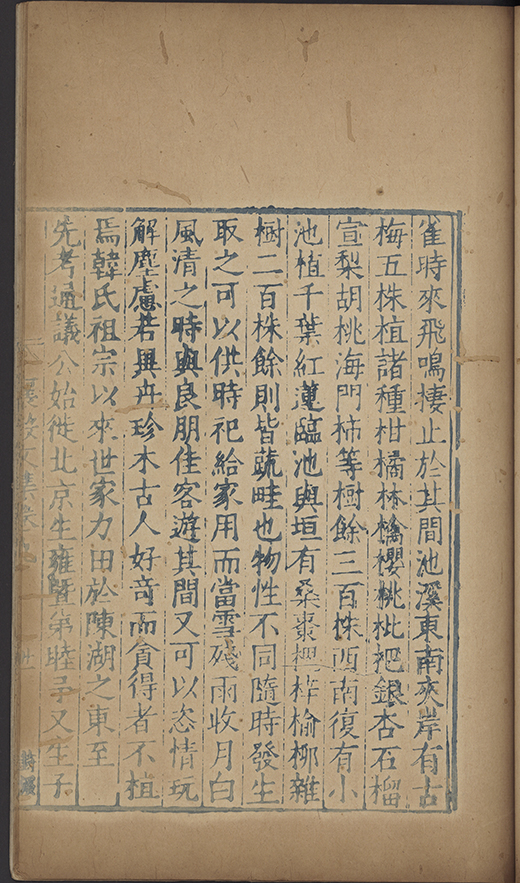 雀時來飛鳴棲止於其間池溪東南夾岸有古
梅五株植諸種柑橘林檎櫻桃枇杷銀杏石榴
宣梨胡桃海門柿等樹餘三百株西南復有小
池植千葉紅蓮臨池與垣有桑棗梓榆柳雜
樹二百株餘則皆蔬畦也物性不同隨時發生
取之可以供時祀給家用而當雪殘雨收月白
風清之時與良朋佳客遊其間又可以恣情玩
解塵慮若異卉珍木古人好奇而貪得者不植
焉韓氏祖宗以來世家力田於陳湖之東至
先考通議公始徙北京生雍暨弟睦予又生子
襄毅文集卷